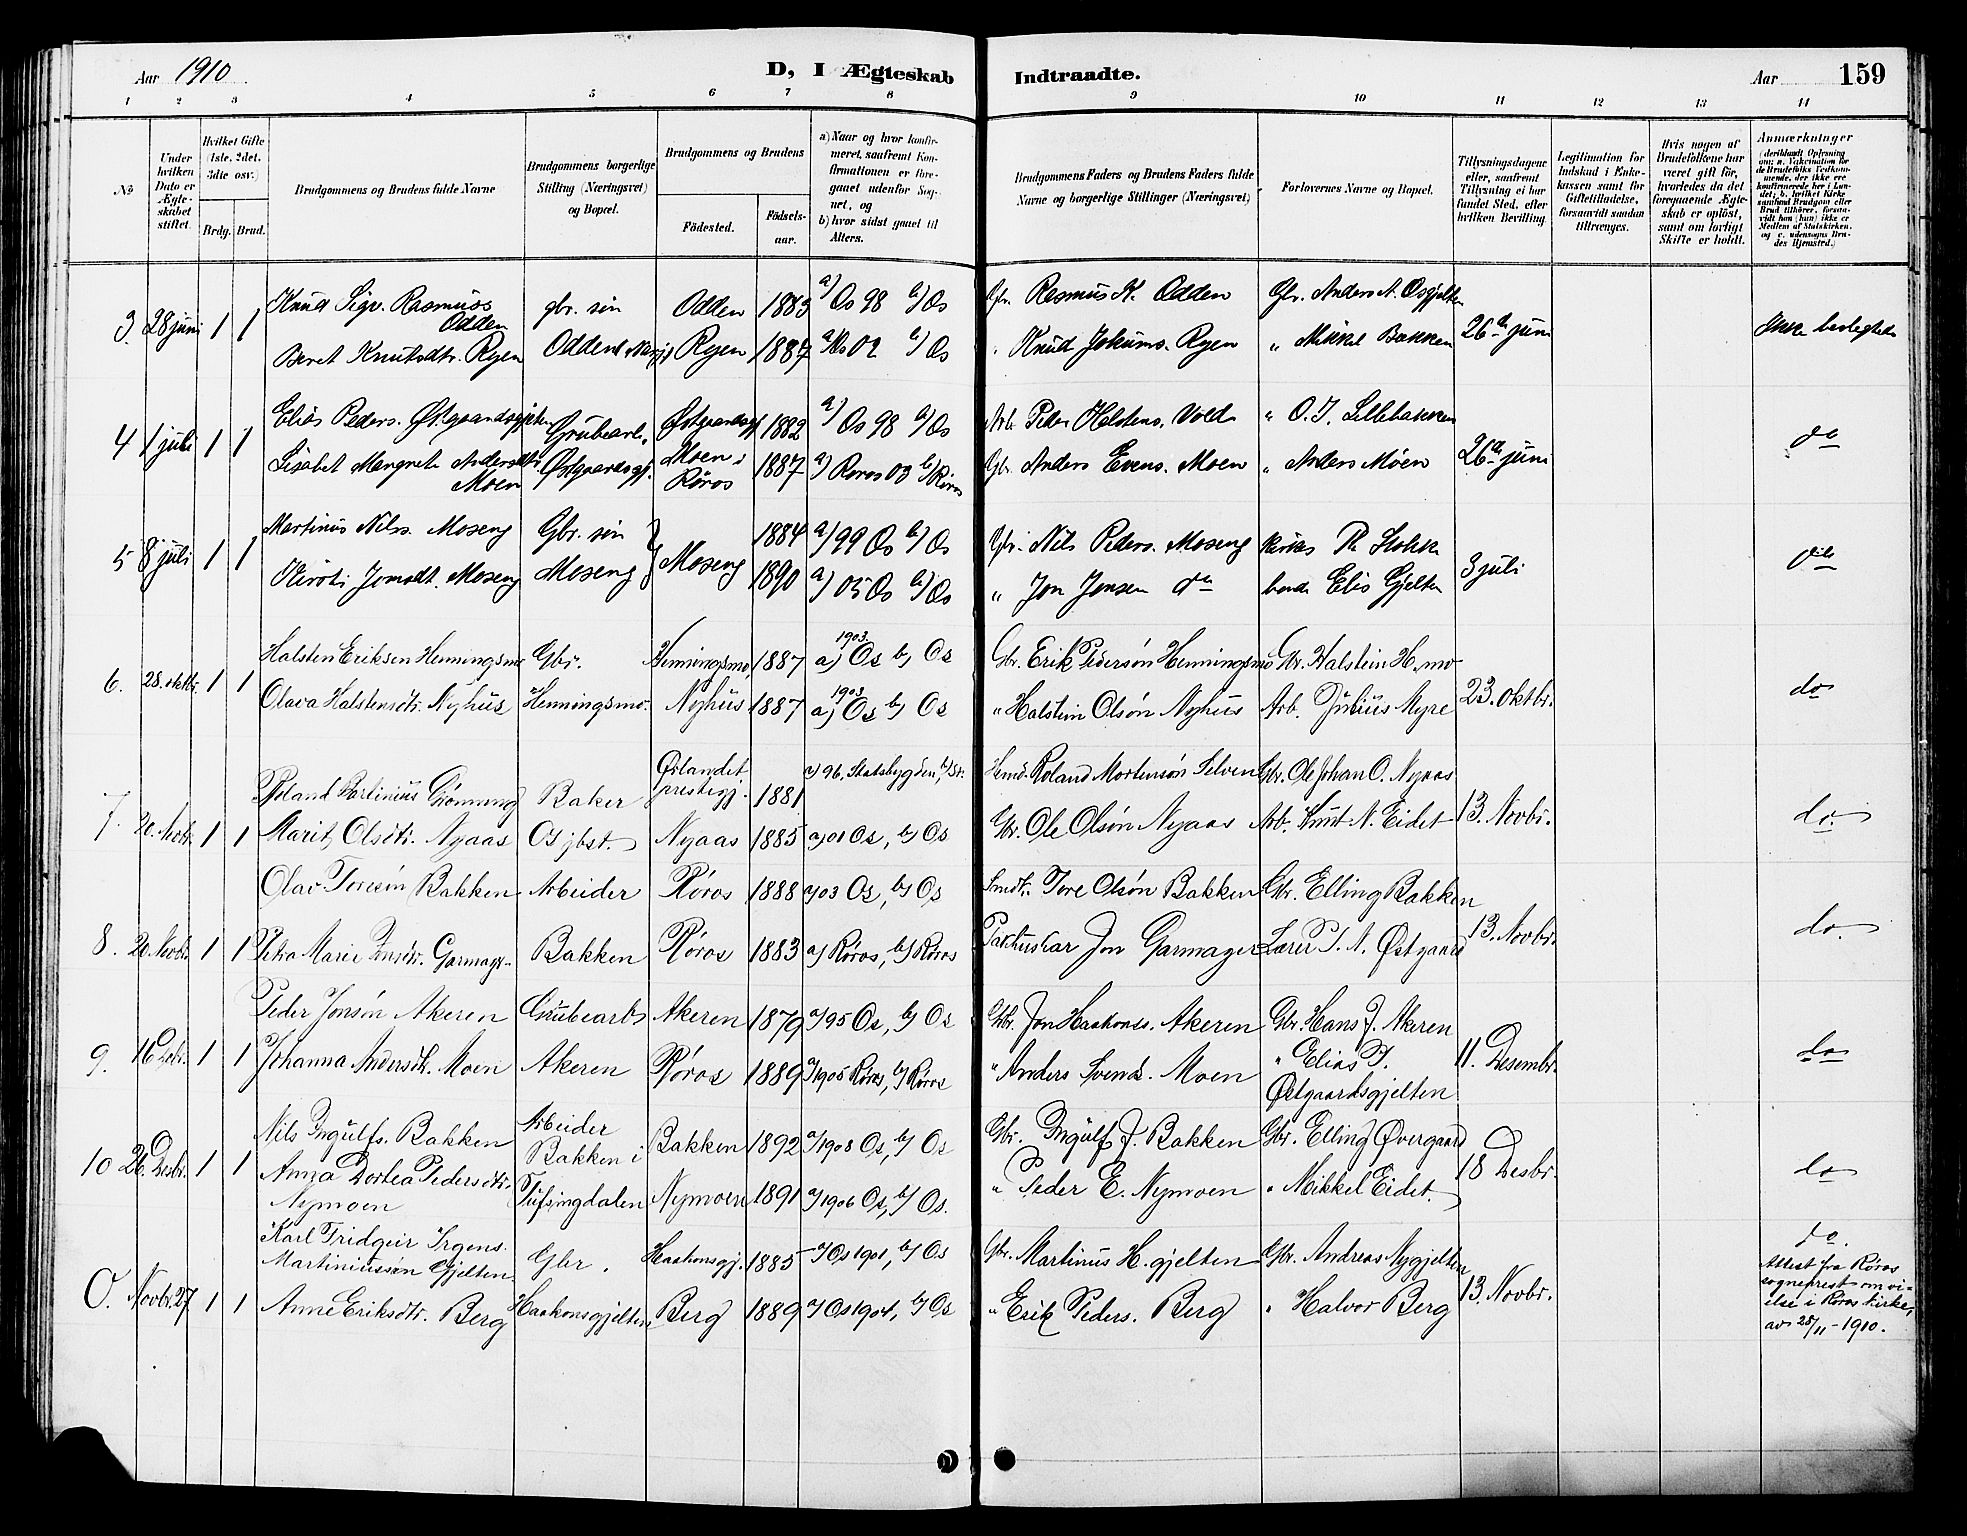 Aar 1910
D, I Ægteskab Indtraadte.
Aar
159
1 2 3 4 5 6 7 8 9 10 11 12 13 14
No
Under hvilken Dato er Ægteskabet stiftet.
Hvilket Gifte (1ste, 2det, 3die osv.)
Brdg. Brud.
Brudgommens og Brudens fulde Navne
Brudgommens borgerlige Stilling (Næringsvei) og Bopæl.
Brudgommens og Brudens
Fødested.
Fødselsaar.
a) Naar og hvor konfirmeret, saafremt Konfirmationen er foregaaet udenfor Sognet, og
b) hvor sidst gaaet til Alters.
Brudgommens Faders og Brudens Faders fulde Navne og borgerlige Stillinger (Næringsvei)
Forlovernes Navne og Bopæl.
Tillysningsdagene eller, saafremt Tillysning ei har fundet Sted, efter hvilken Bevilling.
Legitimation for Indskud i Enkekassen samt for Giftetilladelse, forsaavidt saadan tiltrænges.
Hvis nogen af Brudefolkene har været gift før, hvorledes da det foregaaende Ægteskab er opløst, samt om lovligt Skifte er holdt.
Anmærkninger
(deriblandt Oplysning om: a. Vakcination for de Brudefolks Vedkommende, der ikke ere konfirmerede her i Landet; b. hvilket Kirkesamfund Brudgom eller Brud tilhører, forsaavidt han (hun) ikke er Medlem af Statskirken, og c. udensogns Brudes Hjemsted.)
3. 28 juni 1 1 Knud Sigv. Rasmuss gbr. søn Odden 1883 a) Os 98 b) Os Gbr. Rasmus K. Odden Gbr. Anders N. Osgjelten
Odden
Beret Knutsdtr. Ryen Odden Ryen 1887 a) Os 02 b) Os " Knud Jokums. Ryen " Mikkel Bakken 26de juni Ikke beslegtede
4 1 juli 1 1 Elias Peders. Østgaardsgjelten Grubearb. Østgaardsgj 1882 a) Os 98 b) Os Arb. Peder Halstens. Vold " O. J. Lillebakken
Lisabet Margrete Andersdtr. Østgaardsgj. Moen i 1887 a) Røros 03 b) Røros Gbr. Anders Evens. Moen " Anders Moen 26de juni do
Moen Røros
5 8 juli 1 1 Martinus Nilss. Moseng Gbr. søn Moseng 1884 a) 99 Os b) Os Gbr. Nils Peders. Moseng Th. Stokke
Jonsdt. Moseng Moseng 1890 a) 05 Os b) Os " Jon Jonsen do Elis Gjelten 3 juli do
6. 28. oktbr. 1 1 Halsten Eriksen Henningsmo Gbr. Henningsmo, 1887 a) 1903. Os b) Os Gbr. Erik Pedersøn Henningsmo Gbr. Halstein H.mo
Olava Halstensdtr. Nyhus Henningsmo. Nyhus 1887 a) 1903 Os b) Os " Halstein Olsøn Nyhus Arb. Julius Myre 23. oktbr. do
7. 20. Novbr. 1 1 Roland Martinius Grønning Baker Ørlandet prestegj. 1881 a) 96. Statsbygden, b) Roland Mortensøn Selven Gbr. Ole Johan O. Nyaas
Marit Olsdtr. Nyaas Os jbst. Nyaas 1885 a) 01 Os, b) Os Gbr. Ole Olsøn Nyaas Arb. Knut N. Eidet 13. Novbr. do.
Olav Toresøn Bakken Arbeider Røros 1888 a) 03 Os, b) Os Tore Olsøn Bakken Gbr. Elling Bakken
8. 20. Novbr. 1 1 Petra Marie Jonsdtr. Garmager Bakken Røros 1883 a) Røros, b) Røros Jon Garmager Lærer P. A. Østgaard 13. Novbr. do.
Peder Jonsøn Akeren Grubearb Akeren 1879 a) 95 Os, b) Os Gbr. Jon Haakons. Akeren Gbr. Hans J. Akeren
9. 16 Debr. 1 1 Johanna Andersdtr. Moen Akeren Røros 1889 a) 1905 Røros, b) Røros " Anders Svends. Moen " Elias P. 11. Desembr. do
Østgaardsgjelten
10 26. Desbr. 1 1 Nils Ingulfs. Bakken Arbeider Bakken 1892 a) 1908 Os, b) Os Gbr. Ingulf J. Bakken Gbr. Elling Øvergaard
Bakken i
Anna Dortea Pedersdtr. Tufsingdalen Nymoen 1891 a) 1906 Os, b) Os. " Peder E. Nymoen " Mikkel Eidet. 18 Desbr. do
Nymoen
Karl Fridgeir Irgens. Gbr. Haakonsgj. 1885 a) Os 1901, b) Os Gbr. Martinus H.gjelten Gbr. Andreas Nygjelten do.
Martiniussøn Gjelten
O. Novbr. 27 1 1 Anne Eriksdtr. Berg Haakonsgjelten Berg 1889 a) Os 1904, b) Os " Erik Peders. Berg " Halvor Berg 13. Novbr.
Attest fra Røros
sogneprest om vi-
else i Røros kirke,
av 28/11 - 1910.